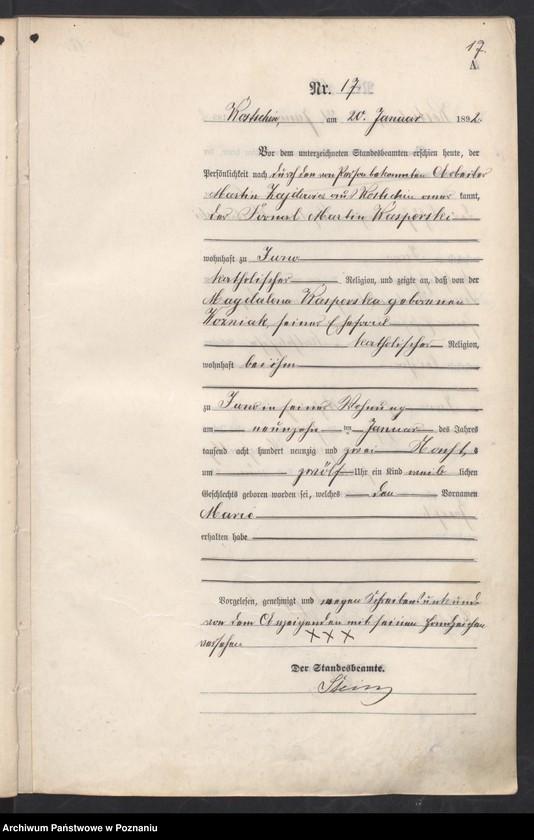 17.
A
Nr. 17
Kostschin, am 20. Januar 1892.
Vor dem unterzeichneten Standesbeamten erschien heute, der
Persönlichkeit nach durch den von Person bekannten Arbeiter
Martin aus Kostschin kannt,
der Martin Kasperski
wohnhaft zu
katholischer Religion, und zeigte an, daß von der
Magdalena Kasperska geborenen
Kozniak, seiner Ehefrau
katholischer Religion,
wohnhaft bei ihm
zu in seiner Wohnung
am neunzehn ten Januar des Jahres
tausend acht hundert neunzig und zwei
um zwölf Uhr ein Kind weib lichen
Geschlechts geboren worden sei, welches den Vornamen
Marie
erhalten habe
Vorgelesen, genehmigt und wegen Schreibensunkunde
von dem Anzeigenden mit seinem Handzeichen
versehen XXX
Der Standesbeamte.
Archiwum Państwowe w Poznaniu